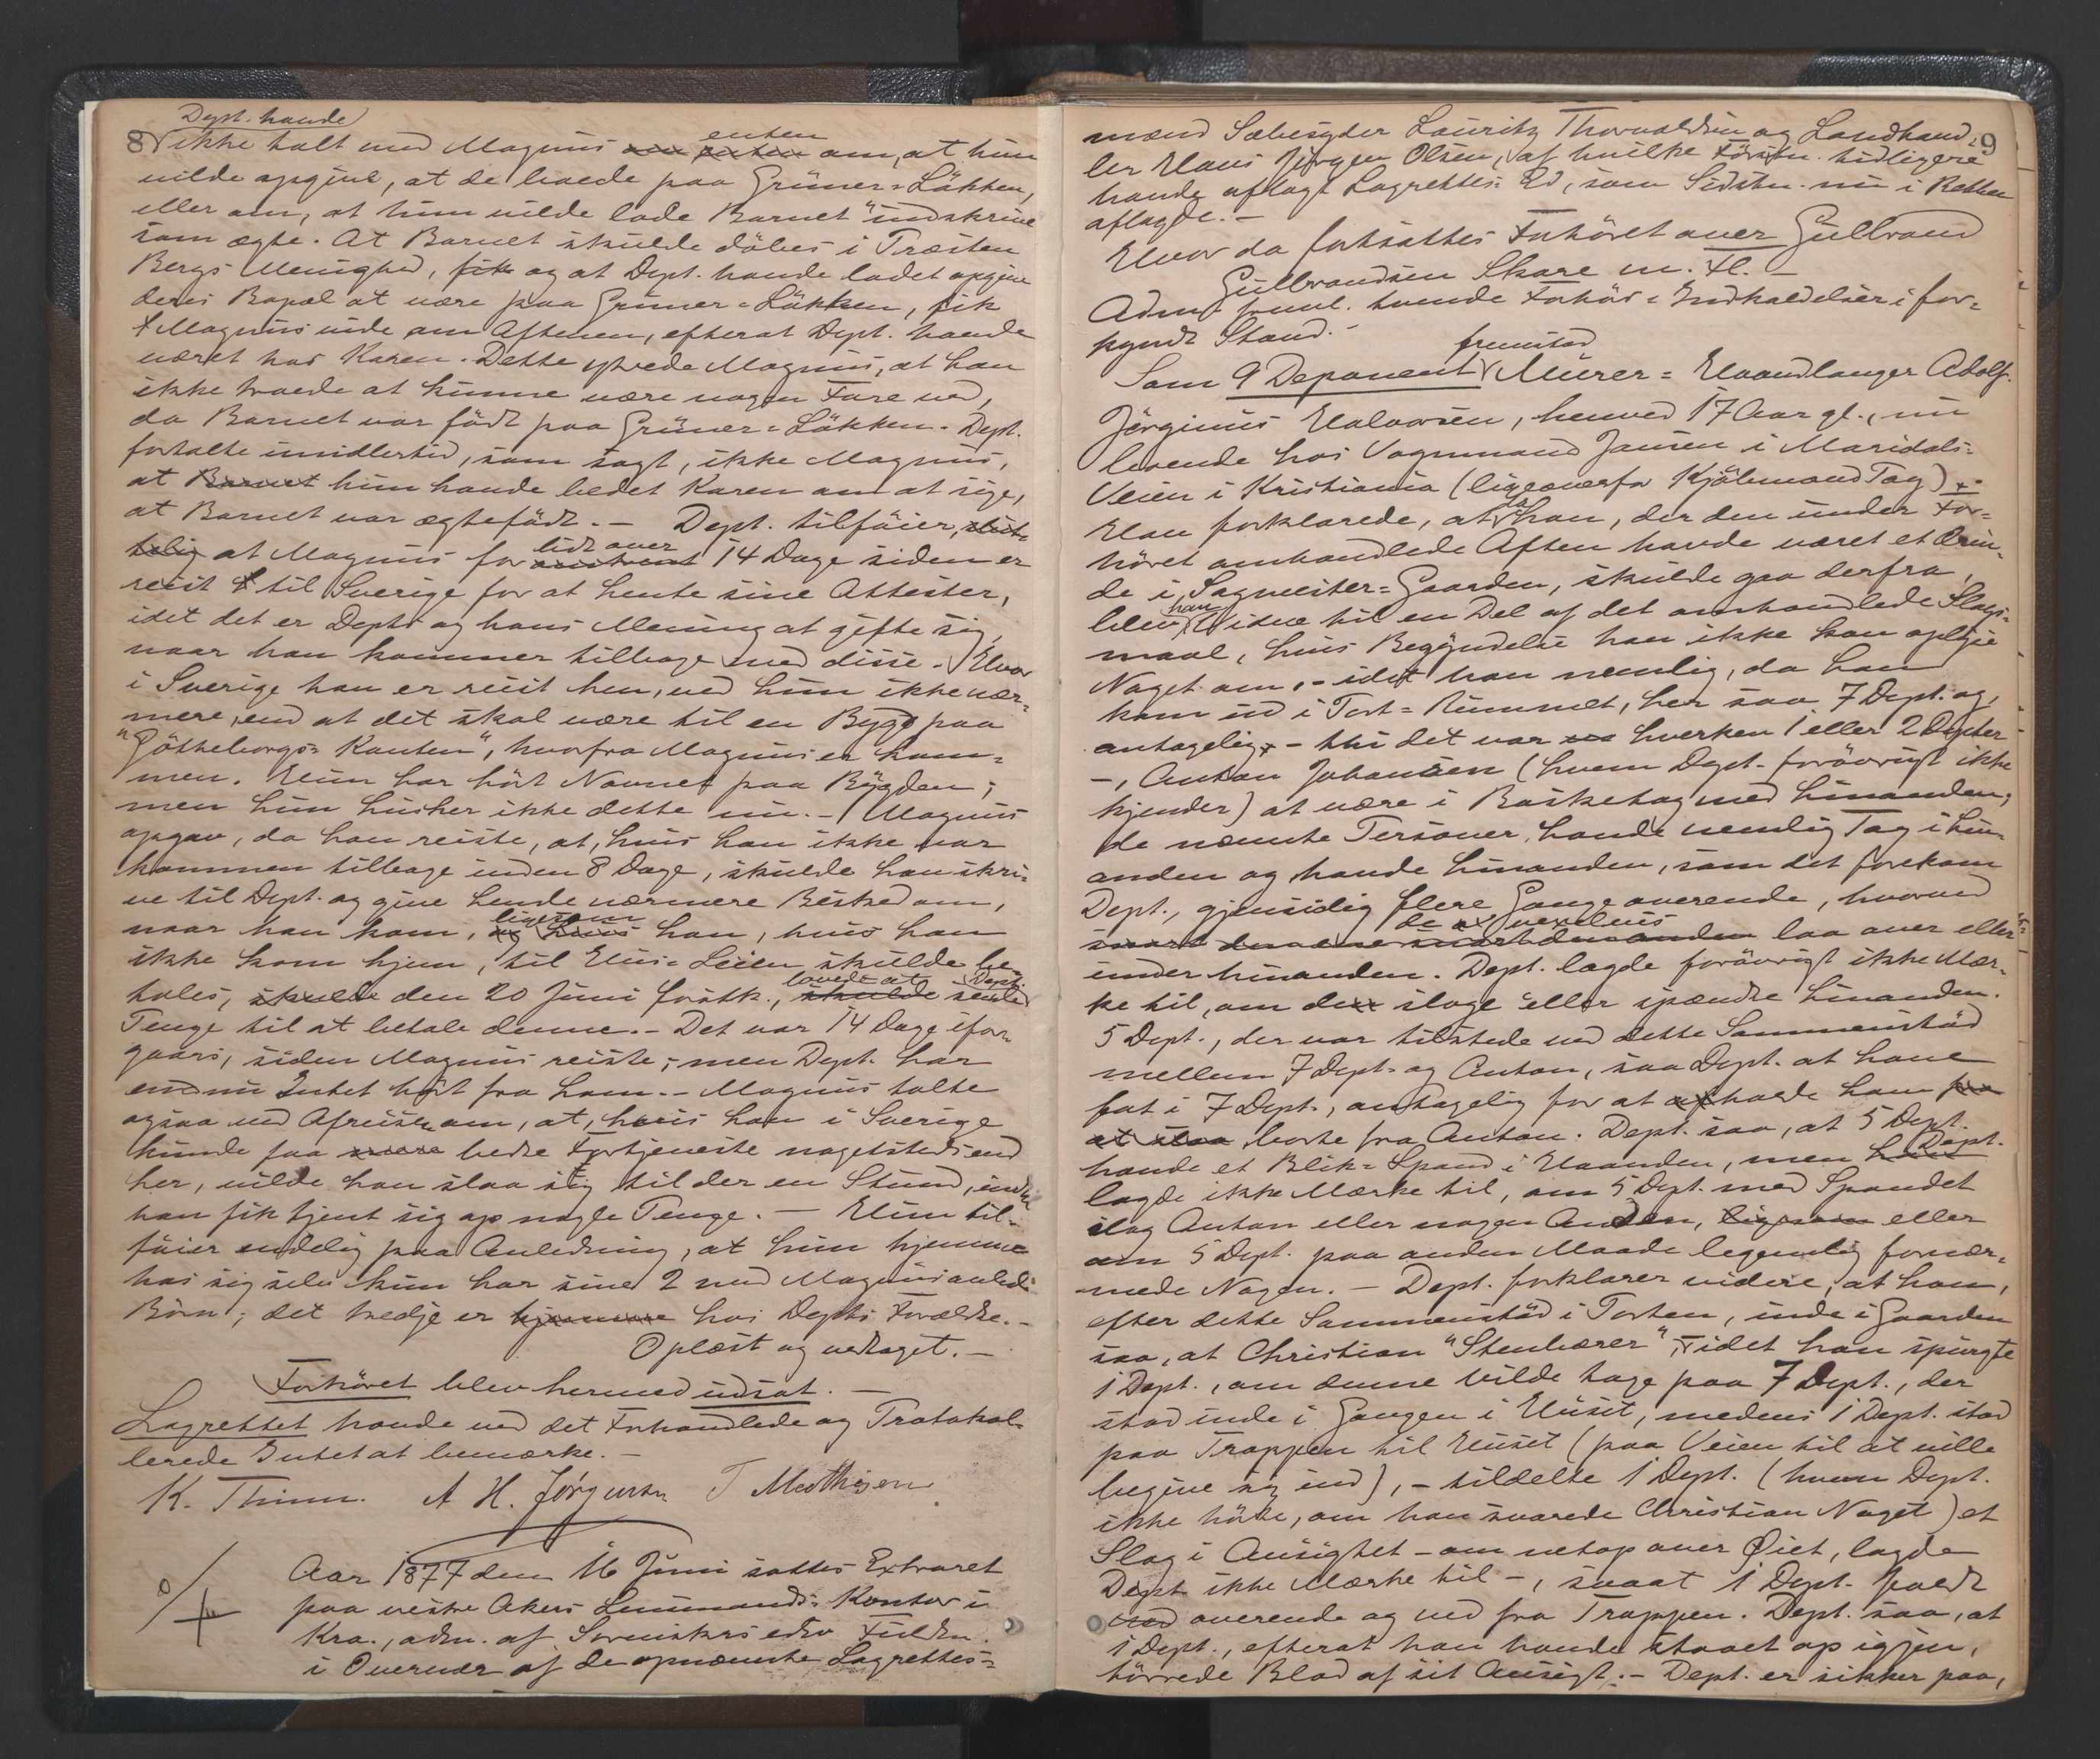 Dept. havde
8 ikke talt med Magnus enten om, at hun
vilde opgive, at de boede paa Grüner-Løkken,
eller om, at hun vilde lade Barnet indskrive
som ægte. At Barnet skulde døbes i Træsten
Bergs Menighed, fik og at Dept. havde ladet opgive
deres Bopæl at være paa Grüner-Løkken, fik
Magnus vide om Aftenen, efterat Dept. havde
været hos Karen. Dette ytrede Magnus, at han
ikke troede at kunne være nogen Fare ved,
da Barnet var født paa Grüner-Løkken. Dept.
fortalte imidlertid, som sagt, ikke Magnus,
at Barnet hun havde bedet Karen om at sige,
at Barnet var ægtefødt. — Dept. tilføier,
at Magnus for lidt over 14 Dage siden er
reist til Sverige for at hente sine Attester,
idet det er Depts og hans Mening at gifte sig,
naar han kommer tilbage med disse. Hvor
i Sverige han er reist hen, ved hun ikke nær-
mere, end at det skal være til en Bygd paa
"Götheborgs-Kanten", hvorfra Magnus er kom-
men. Hun har hørt Navnet paa Bygden;
men hun husker ikke dette nu. — Magnus
opgav, da han reiste, at, hvis han ikke var
kommen tilbage inden 8 Dage, skulde han skri-
ve til Dept. og give hende nærmere Besked om,
naar han kom, ligesom og hvis han, hvis han
ikke kom hjem, til Huus-Leien skulde be-
tales, skulde den 20 Juni førstk., lovede at skulde sende Dept.
Penge til at betale denne. — Det var 14 Dage ifor-
gaars, siden Magnus reiste; men Dept. har
endnu Intet hørt fra ham. — Magnus talte
ogsaa ved Afreisen om, at, hvis han i Sverige
kunde faa bedre Fortjeneste nogetsteds end
her, vilde han slaa sig til der en Stund, indtil
han fik tjent sig op nogle Penge. — Hun til-
føier endelig paa Anledning, at hun hjemme
hos sig selv kun har sine 2 med Magnus avlede
Børn; det tredje er hjemme hos Depts Forældre. —
Oplæst og vedtaget. —
Forhøret blev hermed udsat. —
Lagrettet havde ved det Forhandlede og Protokol-
lerede Intet at bemærke. —
K. Thinn. A H. Jørgensen T Mathisen
Aar 1877 den 16 Juni sattes Extraret
paa vestre Akers Lensmands-Kontor i
Kra., adm. af Sorenskrs edsv Fuldm.
i Overvær af de opnævnte Lagrettes-
9
mænd Sæbesyder Lauritz Thorvaldsen og Landhand-
ler Hans Jørgen Olsen, af hvilke Førstn. tidligere
havde aflagt Lagrettes-Ed, som Sidstn. nu i Retten
aflagde. —
Hvor da fortsattes Forhøret over Gulbrand
Gulbrandsen Skare m. Fl. —
Adm. freml. tvende Forhørs-Indkaldelser i for-
kyndt Stand. —
fremstod
Som 9 Deponent Murer-Haandlanger Adolf
Jørginus Halvorsen, henved 17 Aar gl., nu
boende hos Vognmand Jansen i Maridals-
Veien i Kristiania (ligeoverfor Kjøbmand Tag).
Han forklarede, at da han, der den under For-
høret omhandlede Aften havde været et Æren-
de i Sagmester-Gaarden, skulde gaa derfra,
blev han Vidne til en Del af det omhandlede Slags-
maal, hvis Begyndelse han ikke kan oplyse
Noget om, — idet han nemlig, da han
kom ud i Port-Rummet, her saa 7 Dept. og,
antagelig, — thi det var hverken 1 eller 2 Depter
—, Anton Johansen (hvem Dept. forøvrigt ikke
kjender) at være i Basketag med hinanden;
de nævnte Personer havde nemlig Tag i hin-
anden og havde hinanden, som det forekom
Dept., gjensidig flere Gange overende, hvorved
de vexelvis
snart den ene snart den anden laa over eller
under hinanden. Dept. lagde forøvrigt ikke Mær-
ke til, om de sloge eller spændte hinanden.
5 Dept., der var tilstede ved dette Sammenstød
mellem 7 Dept. og Anton, saa Dept. at have
fat i 7 Dept., antagelig for at holde ham
borte fra Anton. Dept. saa, at 5 Dept.
havde et Blik-Spand i Haanden, men Dept.
lagde ikke Mærke til, om 5 Dept. med Spandet
slog Anton eller nogen Anden, ligesom eller
om 5 Dept. paa anden Maade legemlig fornær-
mede Nogen. — Dept. forklarer videre, at han,
efter dette Sammenstød i Porten, inde i Gaarden
saa, at Christian "Stenbærer", idet han spurgte
1 Dept., om denne vilde tage paa 7 Dept., der
stod inde i Gangen i Huset, medens 1 Dept. stod
paa Trappen til Huset (paa Veien til at ville
begive sig ind), — tildelte 1 Dept. (hvem Dept.
ikke hørte, om han svarede Christian Noget) et
Slag i Ansigtet — om netop over Øiet, lagde
Dept ikke Mærke til —, saaat 1 Dept. faldt
overende og ned fra Trappen. Dept. saa, at
1 Dept., efterat han havde staaet op igjen,
tørrede Blod af sit Ansigt. — Dept. er sikker paa,